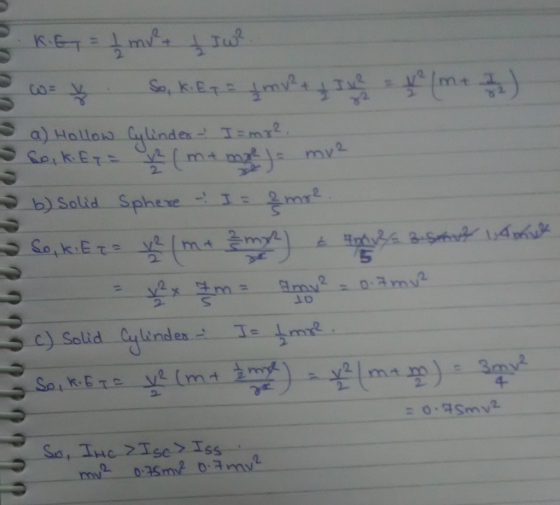 K.E_T = 1/2 mv² + 1/2 Iω².
ω = v/r . So, K.E_T = 1/2 mv² + 1/2 I v²/r² = v²/2 (m + I/r²)
a) Hollow Cylinder :- I = mr².
So, K.E_T = v²/2 (m + mr²/r²) = mv²
b) Solid Sphere :- I = 2/5 mr².
So, K.E_T = v²/2 (m + 2/5 mr²/r²) = 7mv²/5 = 3.5mv² 1.4mv²
= v²/2 × 7/5 m = 7mv²/10 = 0.7mv²
c) Solid Cylinder :- I = 1/2 mr².
So, K.E_T = v²/2 (m + 1/2 mr²/r²) = v²/2 (m + m/2) = 3mv²/4
= 0.75mv²
So, I_HC > I_SC > I_SS .
mv² 0.75mv² 0.7mv²